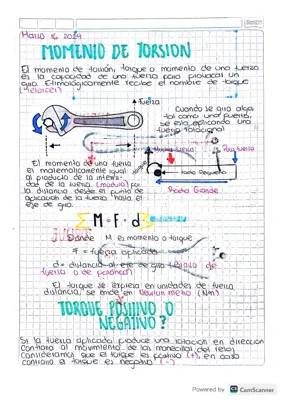 Marzo 16 2024
MOMENTO DE TORSION
El momento de torsión, torque o momento de una fuerza
es la capacidad de una fuerza para provocar un
giro. Etimologicamente recibe el nombre de torque
Fuerza
Cuando se gira algo
tal como una puerta,
se esta aplicando una
fuerza rotacional
Mucha fuerza
Poca fuerza
El momento de una fuerza
es matematicamente igual
al producto de la intensi-
dad de la fuerza (modulo) por
la distancia desde el punto de
aplicación de la fuerza hasta el
eje de giro.
Radio Pequeño
Radio Grande
ΣM = F · d
Donde M es momento o torque
F = fuerza aplicada
d = distancia al eje de giro (brazo de
fuerza o de palanca)
El torque se expresa en unidades de fuerza
distancia, se mide en Newton metro (Nm)
TORQUE POSITIVO O
NEGATIVO?
Si la fuerza aplicada produce una rotación en dirección
contraria al movimiento de las manecillas del reloj
Consideramos que el torque es positivo (+), en caso
contrario el torque es negativo (-)
Powered by CS CamScanner